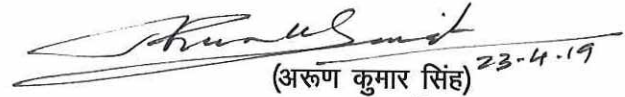 (अरूण कुमार सिंह) 23-4-19